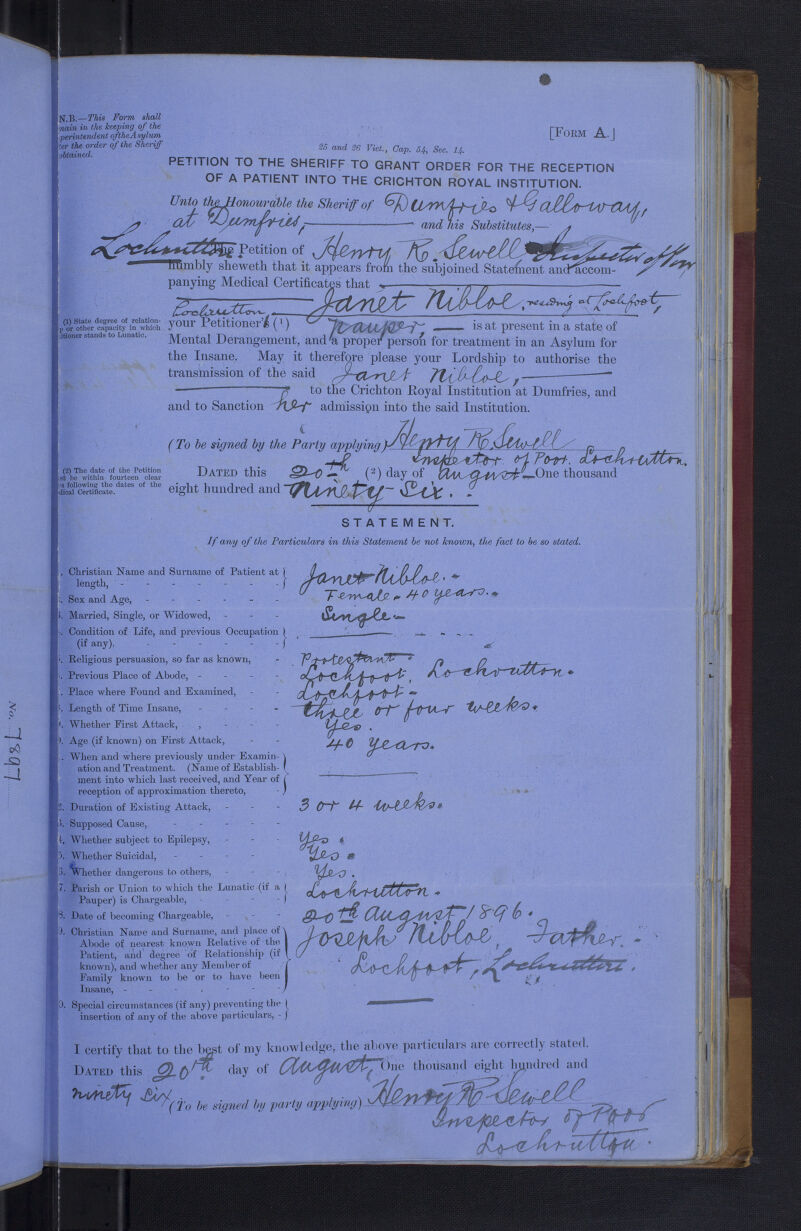 N.B.—This Form shall
main in the keeping of the
perintendent of the Asylum
ter the order of the Sheriff
obtained.
[FORM A.]
25 and 26 Vict., Cap. 54, Sec. 14.
PETITION TO THE SHERIFF TO GRANT ORDER FOR THE RECEPTION
OF A PATIENT INTO THE CRICHTON ROYAL INSTITUTION.
Unto the Honourable the Sheriff of Dumfries & Galloway,
at Dumfries, and his Substitutes,—
The Petition of Henry R. Sewell, Inspector of Poor
Lochrutton.
humbly sheweth that it appears from the subjoined Statement and accom-
panying Medical Certificates that
Janet Nibloe, residing at Lochfoot,
Lochrutton,
(1) State degree of relation-
p or other capacity in which
itioner stands to Lunatic.
your Petitioner's (1) Pauper, is at present in a state of
Mental Derangement, and a proper person for treatment in an Asylum for
the Insane. May it therefore please your Lordship to authorise the
transmission of the said Janet Nibloe,
to the Crichton Royal Institution at Dumfries, and
and to Sanction her admission into the said Institution.
(To be signed by the Party applying) Henry R. Sewell
Inspector of Poor. Lochrutton.
(2) The date of the Petition
st be within fourteen clear
s following the dates of the
dical Certificate.
DATED this 20th (2) day of August One thousand
eight hundred and Ninety Six.
STATEMENT.
If any of the Particulars in this Statement be not known, the fact to be so stated.
. Christian Name and Surname of Patient at length, - Janet Nibloe.
. Sex and Age, - Female 40 years.
. Married, Single, or Widowed, - Single
. Condition of Life, and previous Occupation (if any). -
. Religious persuasion, so far as known, - Protestant
. Previous Place of Abode, - Lochfoot, Lochrutton.
. Place where Found and Examined, - Lochfoot
. Length of Time Insane, - three or four weeks.
. Whether First Attack, , - Yes.
. Age (if known) on First Attack, - 40 years.
. When and where previously under Examin-
ation and Treatment. (Name of Establish-
ment into which last received, and Year of
reception of approximation thereto, -
2. Duration of Existing Attack, - 3 or 4 weeks.
3. Supposed Cause, -
4. Whether subject to Epilepsy, - Yes
5. Whether Suicidal, - Yes
6. Whether dangerous to others, - Yes.
7. Parish or Union to which the Lunatic (if a Pauper) is Chargeable, - Lochrutton.
8. Date of becoming Chargeable, - 20th August 1896.
9. Christian Name and Surname, and place of Joseph Nibloe, Father.
Abode of nearest known Relative of the
Patient, and degree of Relationship (if Lochfoot, Lochrutton.
known), and whether any Member of
Family known to be or to have been
Insane, -
0. Special circumstances (if any) preventing the
insertion of any of the above particulars, -
I certify that to the best of my knowledge, the above particulars are correctly stated.
DATED this 20th day of August, One thousand eight hundred and
ninety Six
(To be signed by party applying) Henry R Sewell
Inspector of Poor
Lochrutton.
No. 7897